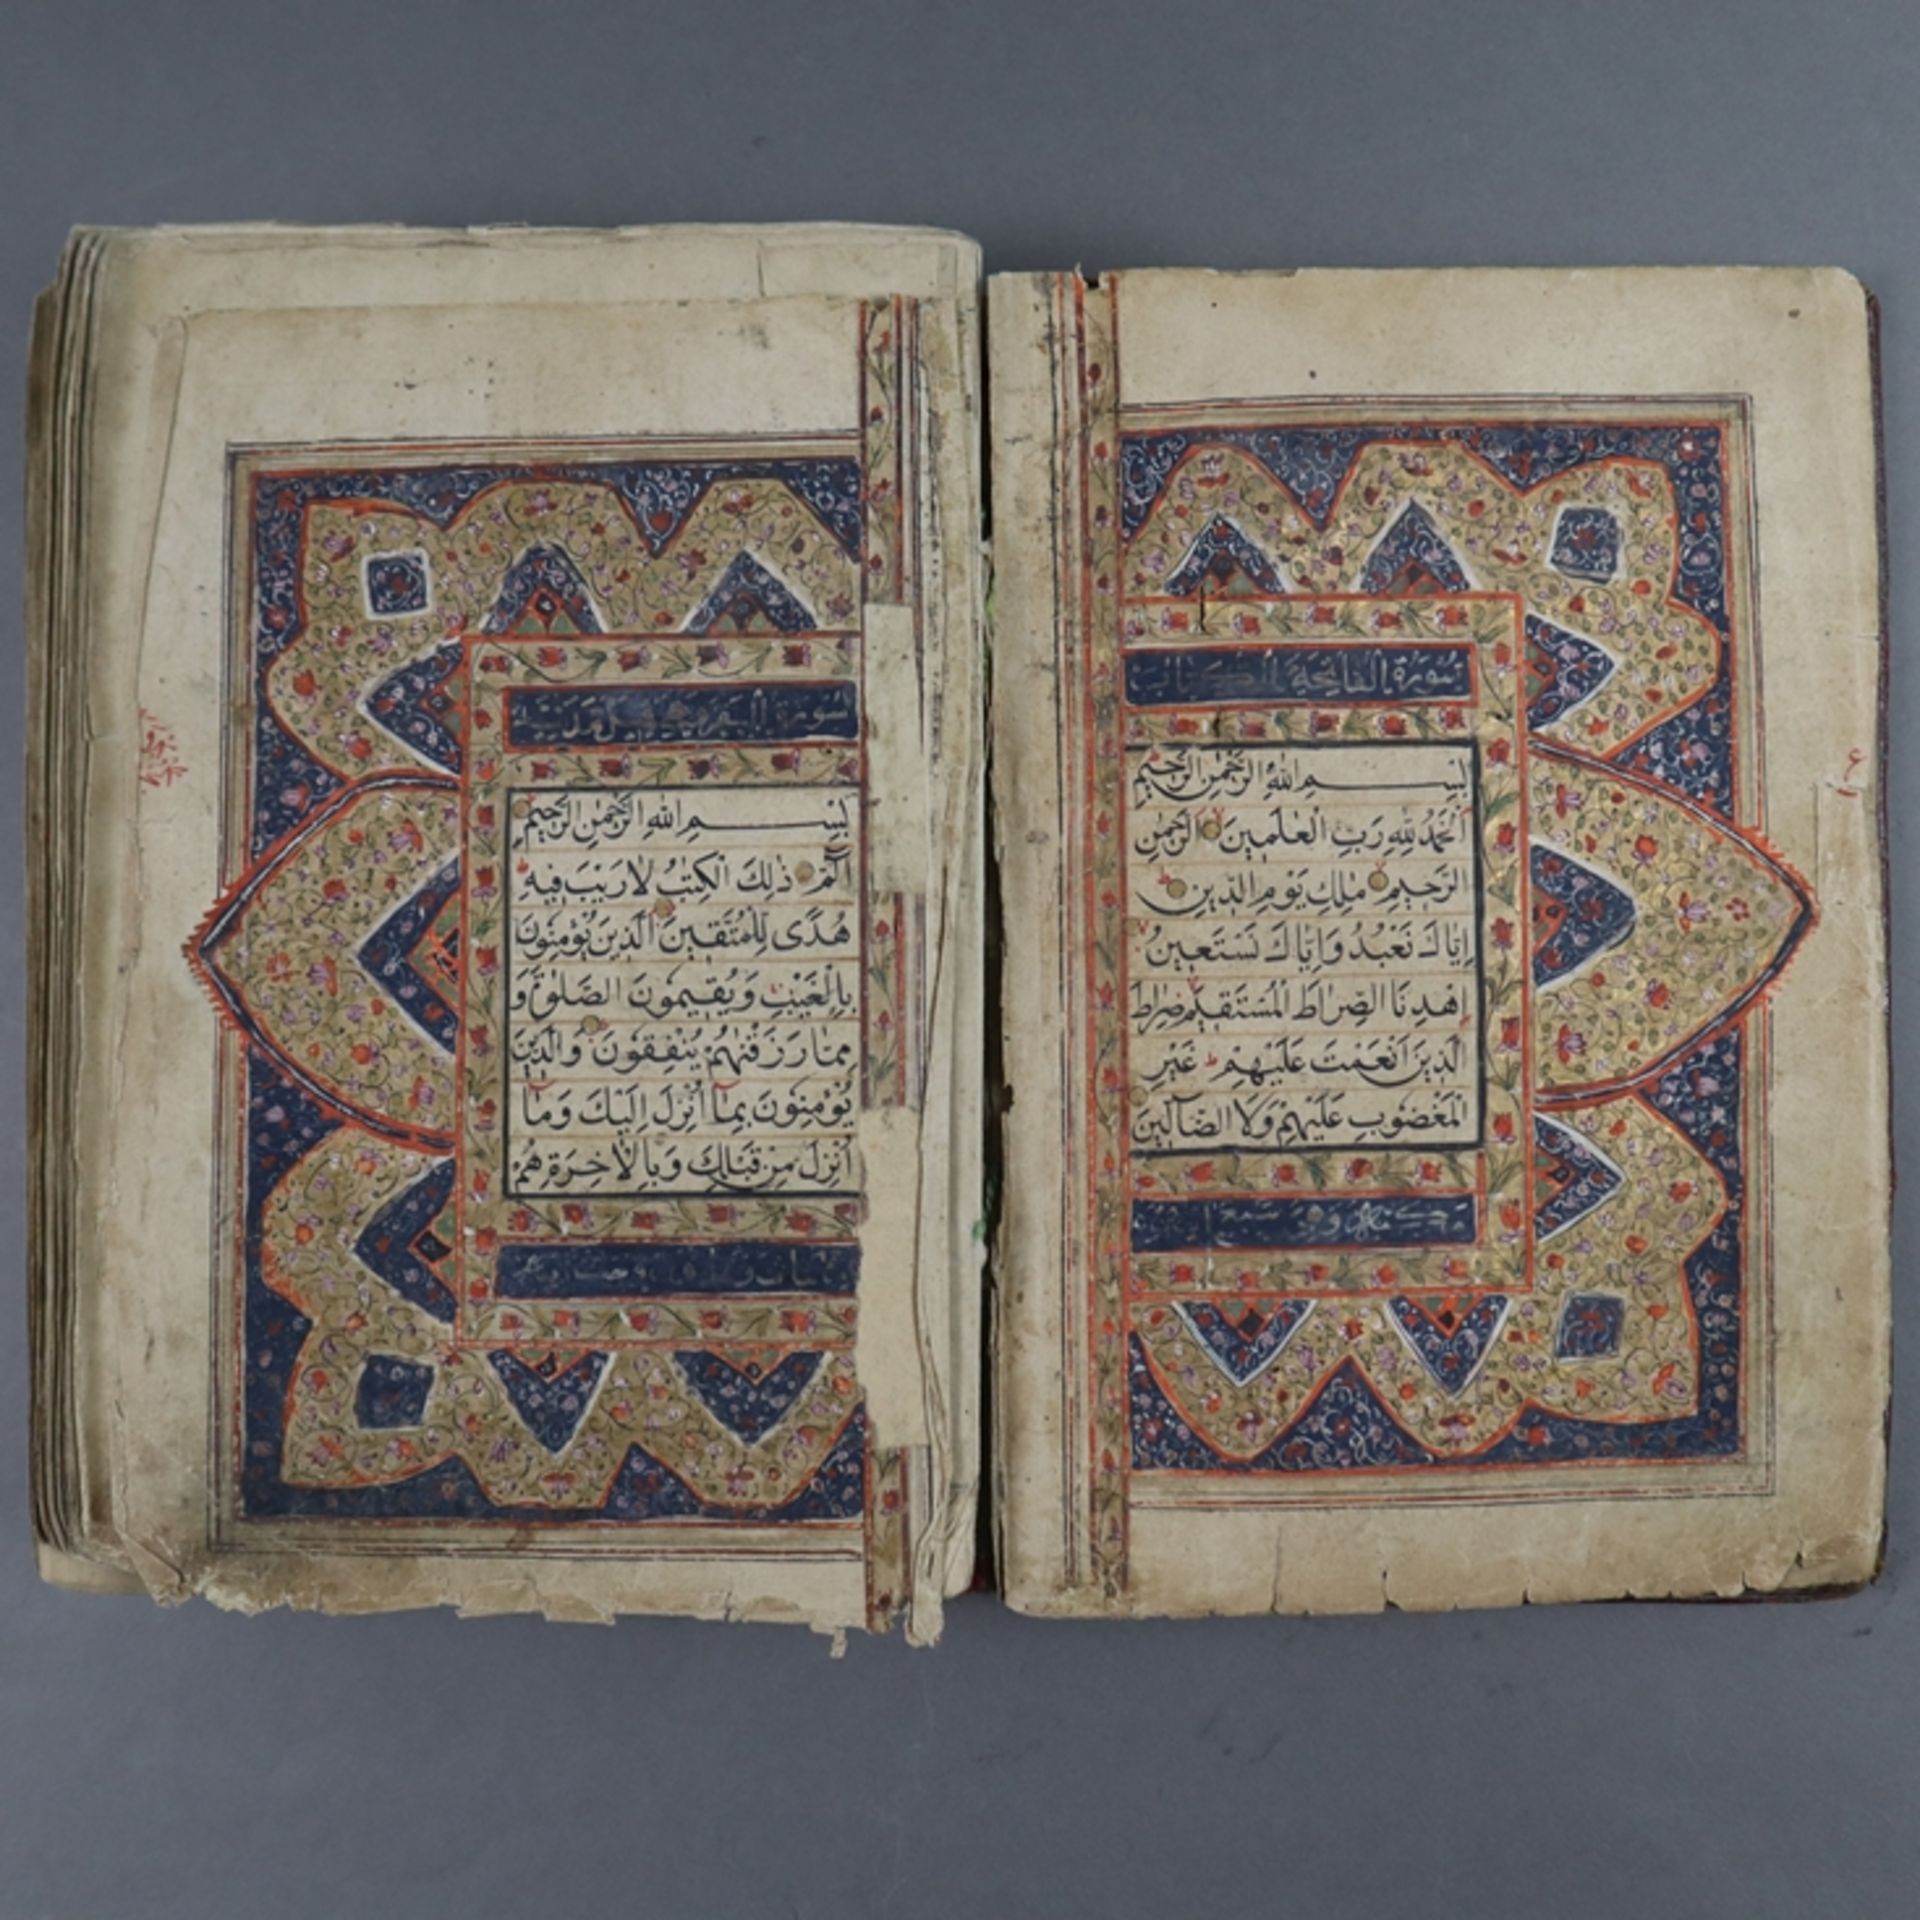 سورة الفاتحة الكتاب
بِسْمِ اللهِ الرَّحْمٰنِ الرَّحِيْمِ
اَلْحَمْدُ لِلّٰهِ رَبِّ الْعٰلَمِيْنَ الرَّحْمٰنِ
الرَّحِيْمِ مٰلِكِ يَوْمِ الدِّيْنِ
اِيَّاكَ نَعْبُدُ وَاِيَّاكَ نَسْتَعِيْنُ
اِهْدِنَا الصِّرَاطَ الْمُسْتَقِيْمَ صِرَاطَ
الَّذِيْنَ اَنْعَمْتَ عَلَيْهِمْ غَيْرِ
الْمَغْضُوْبِ عَلَيْهِمْ وَلَا الضَّآلِّيْنَ
وهي سبع
سورة البقرة مدنية
بِسْمِ اللهِ الرَّحْمٰنِ الرَّحِيْمِ
الٓمّٓ ذٰلِكَ الْكِتٰبُ لَا رَيْبَ فِيْهِ
هُدًى لِّلْمُتَّقِيْنَ الَّذِيْنَ يُؤْمِنُوْنَ
بِالْغَيْبِ وَيُقِيْمُوْنَ الصَّلٰوةَ وَ
مِمَّا رَزَقْنٰهُمْ يُنْفِقُوْنَ وَالَّذِيْنَ
يُؤْمِنُوْنَ بِمَآ اُنْزِلَ اِلَيْكَ وَمَآ
اُنْزِلَ مِنْ قَبْلِكَ وَبِالْاٰخِرَةِ هُمْ